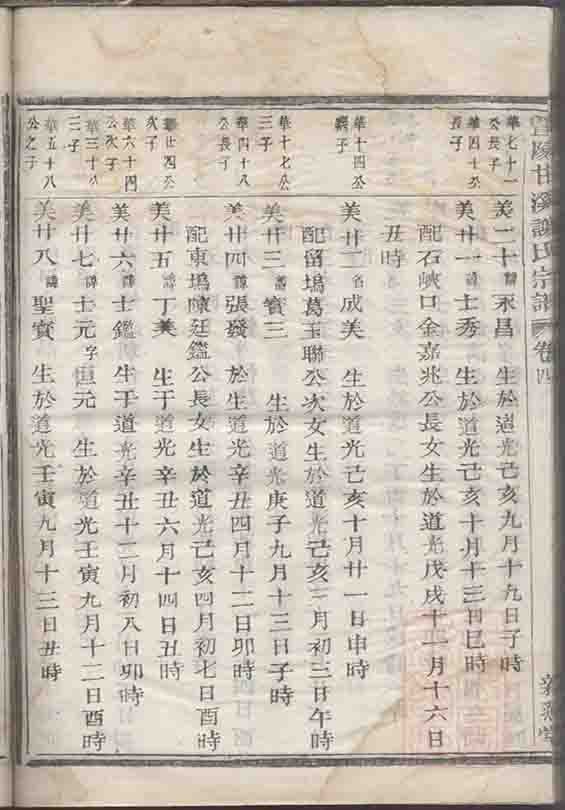 甘溪謝氏宗譜 卷四
華七十一公長子
美二十諱永昌 生於道光己亥九月十九日子時
華四十公長子
美廿一諱士秀 生於道光己亥十月十三日巳時
配石峽口金嘉兆公長女生於道光戊戌十一月十六日
丑時
華十四公
美廿二名成美 生於道光己亥十月廿一日申時
配留塢葛玉聯公次女生於道光己亥三月初三日午時
華十七公三子
美廿三諱寶三 生於道光庚子九月十三日子時
華四十八公長子
美廿四諱張發 於生道光辛丑四月十二日卯時
配東塢陳廷鑑公長女生於道光己亥四月初七日酉時
華廿四公次子
美廿五諱丁美 生于道光辛丑六月十四日丑時
華六十四公次子
美廿六諱士鑑 生于道光辛丑十二月初八日卯時
華三十八三子
美廿七諱士元字恒元 生於道光壬寅九月十二日酉時
華五十八公之子
美廿八諱聖寶 生於道光壬寅九月十三日丑時